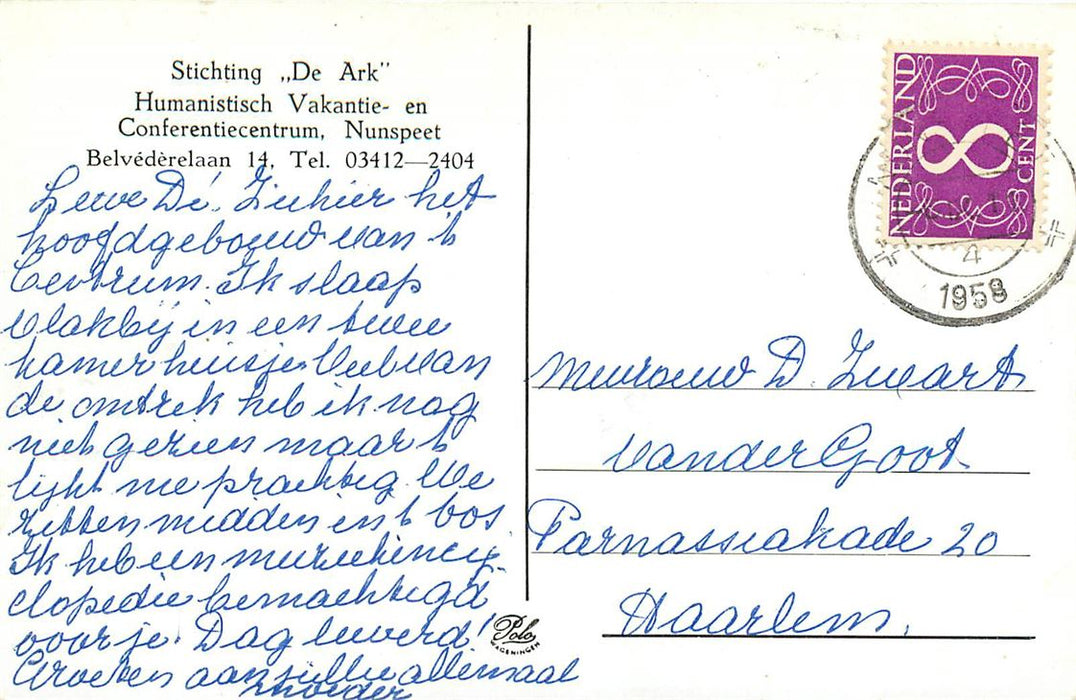 Stichting „De Ark"
Humanistisch Vakantie- en
Conferentiecentrum, Nunspeet
Belvédèrelaan 14, Tel. 03412—2404
Lieve Dé. Ziehier het
hoofdgebouw van 't
Centrum. Ik slaap
vlakbij in een twee
kamerhuisje. Veel van
de omtrek heb ik nog
niet gezien maar 't
lijkt me prachtig. We
zitten midden in 't bos.
Ik heb een muziekency-
clopedie bemachtigd
voor je. Dag lieverd!
Groeten aan jullie allemaal
moeder
Polo
WAGENINGEN
NEDERLAND
8
CENT
4
1958
Mevrouw D. Zwart
van der Goot
Parnassiakade 20
Haarlem.